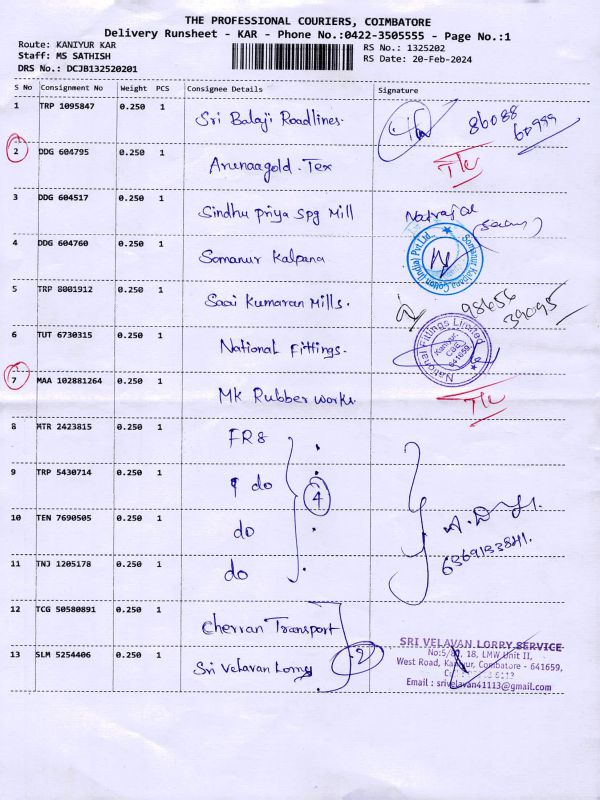 THE PROFESSIONAL COURIERS, COIMBATORE
Delivery Runsheet - KAR - Phone No.:0422-3505555 - Page No.:1
Route: KANIYUR KAR
RS No.: 1325202
Staff: MS SATHISH
RS Date: 20-Feb-2024
DRS No.: DCJB132520201
S No Consignment No Weight PCS Consignee Details Signature
1 TRP 1095847 0.250 1 Sri Balaji Roadlines. 86088
60999
2 DDG 604795 0.250 1 Arunaagold. Tex
3 DDG 604517 0.250 1 Sindhu Priya Spg Mill Natraj
4 DDG 604760 0.250 1 Somanur Kalpana
Somanur Kalpana Cotton (India) Pvt.Ltd.,
5 TRP 8001912 0.250 1 Saai Kumaran Mills. 98656
39095
6 TUT 6730315 0.250 1 National Fittings.
National Fittings Limited
Kaniyur,
CBE
641659.
7 MAA 102881264 0.250 1 MK Rubber works.
8 MTR 2423815 0.250 1 FR8
9 TRP 5430714 0.250 1 do
4
10 TEN 7690505 0.250 1 do
11 TNJ 1205178 0.250 1 do
12 TCG 50580891 0.250 1 Cherran Transport
13 SLM 5254406 0.250 1 Sri Velavan Lorry 2
SRI VELAVAN LORRY SERVICE
18, LMW Unit II,
West Road, Kaniyur, Coimbatore - 641659,
Email : srivelavan41113@gmail.com